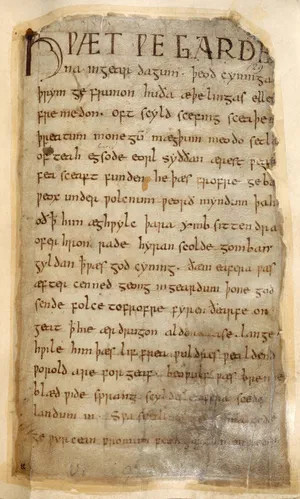 HǷÆT ǷE GARDE
na ingear dagum · þeod cyninga
þrym ge frunon huða æþelingas elle
fre medon. oft scyld scefing sceaþe
þreatum monegū mægþum meodo setla
of teah egsode eorl syððan ærest
fea sceaft funden he þæs frofre geba
ƿeox under ƿolcnum ƿeorð myndum þah
oð ꝥ him æghƿylc þara ymb sittendra
ofer hron rade hyran scolde gomban
gyldan ꝥ ƿæs god cyning. ðæm eafera ƿæs
æfter cenned geong ingeardum þone god
sende folce tofrofre fyren ðearfe on
geat ꝥ hie ær drugon aldor ase. lange
hƿile him þæs lif frea ƿuldres ƿealdend
ƿorold are for geaf. beoƿulf ƿæs breme
blæd ƿide sprang scyldes eafera scede
landum in. Sƿa
ge ƿyrcean fromum